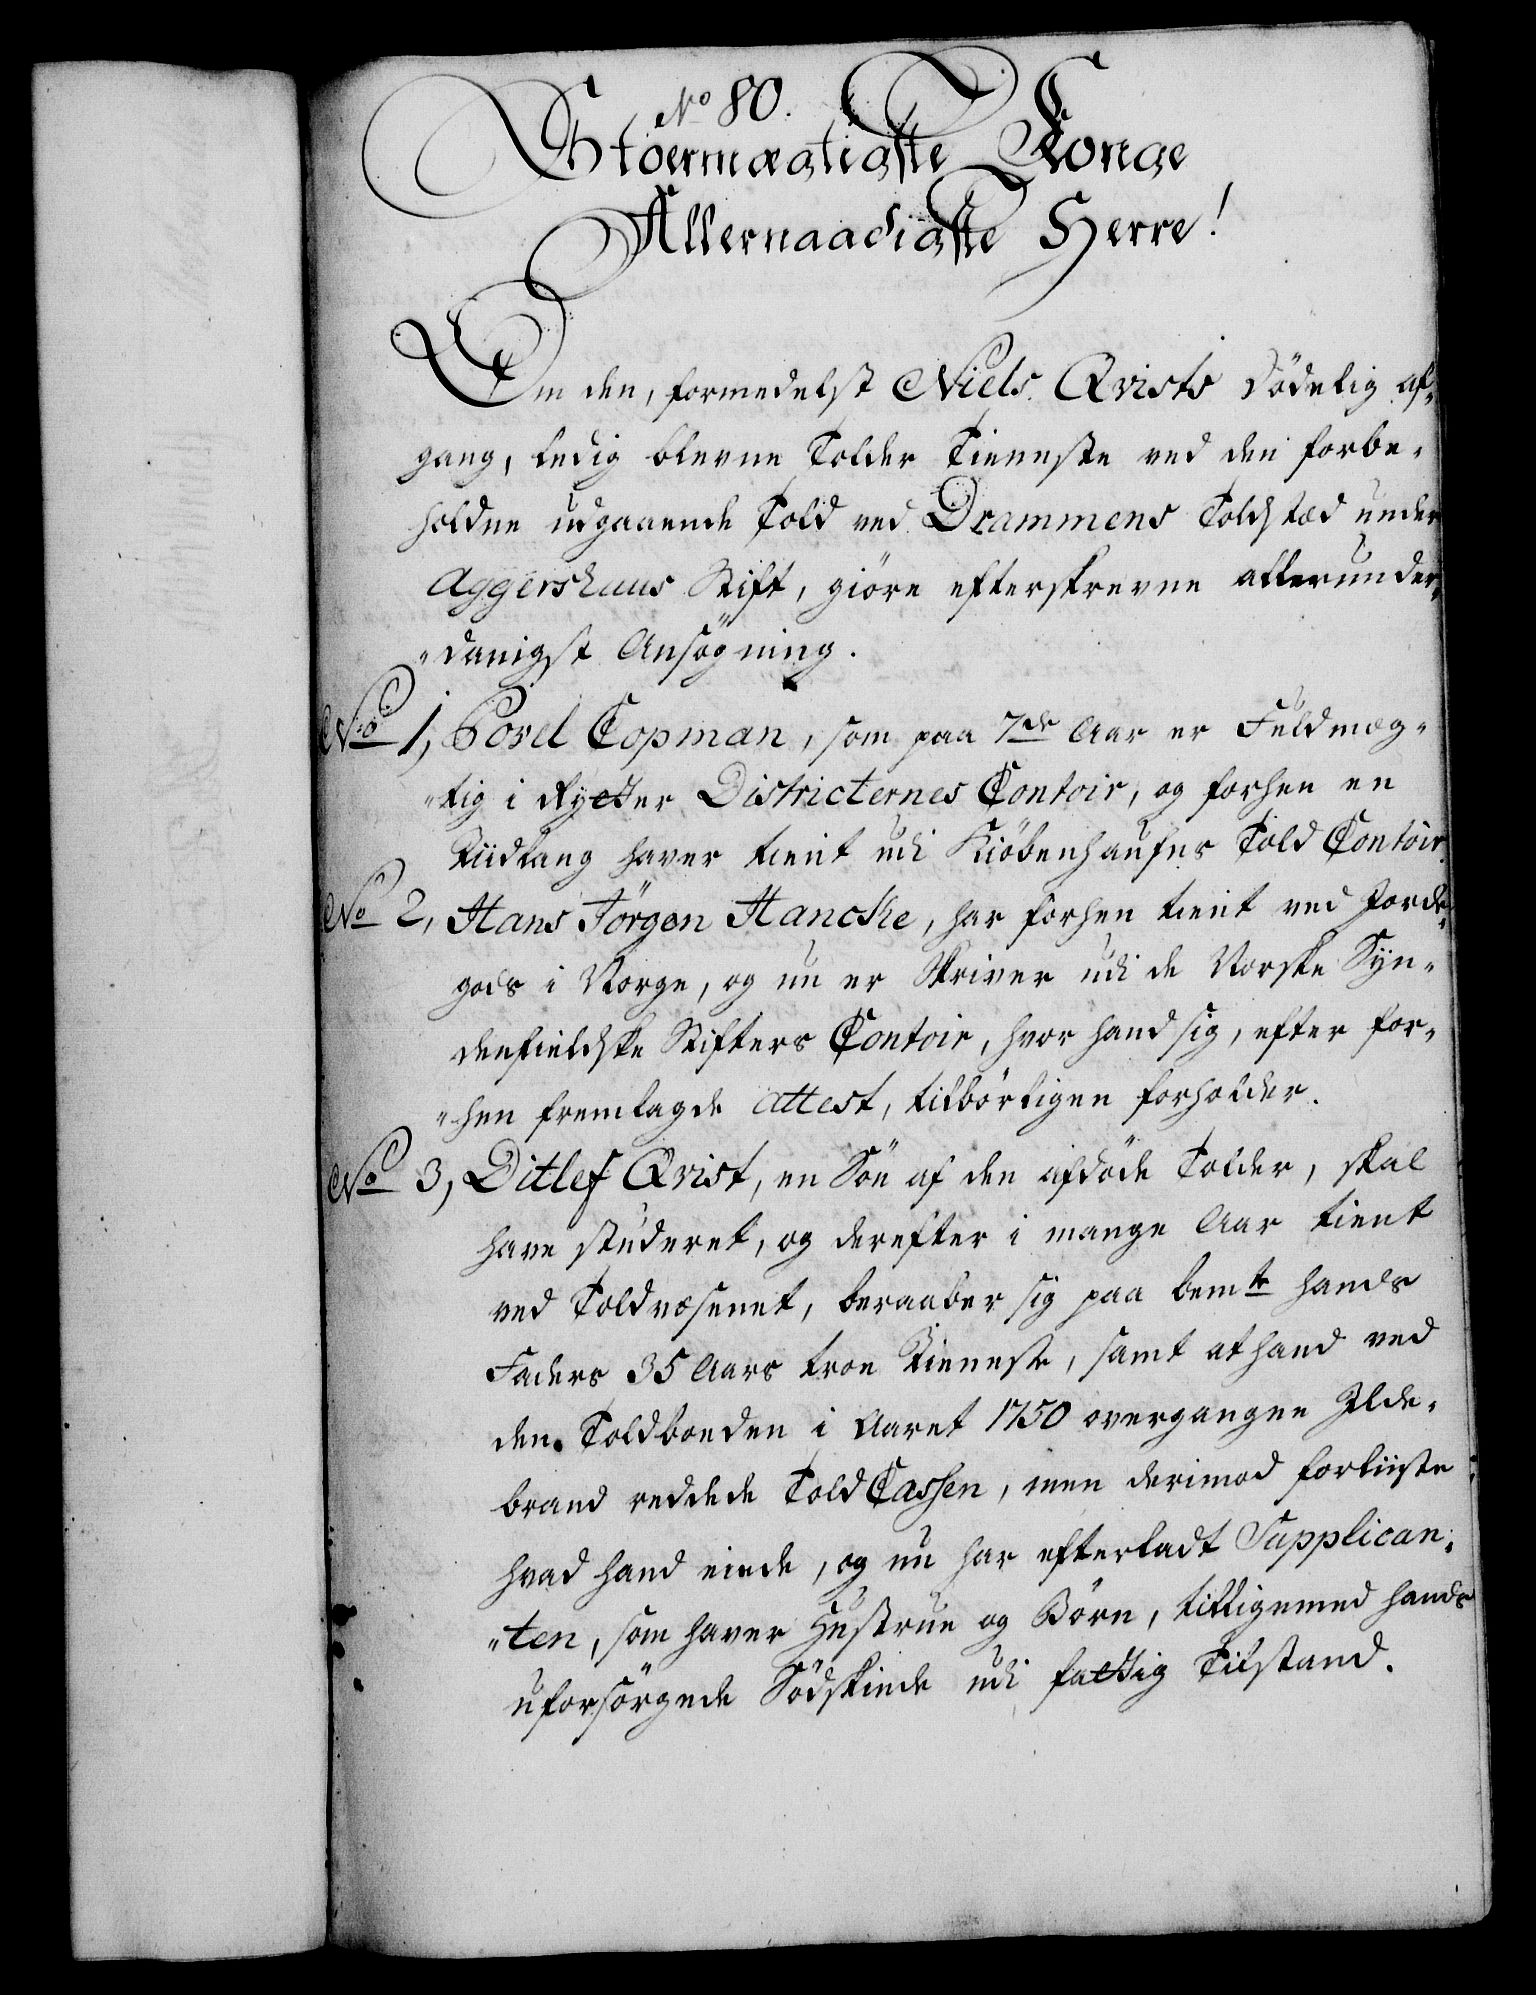 No 80.
Stoermægtigste Konge
Allernaadigste Herre!
Om den, formedelst Niels Qvists dödelig af-
gang, ledig blevne Tolder Tieneste ved den forbe-
holdne udgaaende Told ved Drammens Toldstæd under
Aggershuus Stift, giöre efterskrevne allerunder-
"danigst Ansögning.
No 1, Povel Copman, som paa 7de Aar er Fuldmæg-
"tig i Rytter Districternes Contoir, og forhen en
Tiidlang haver tient udi Kiöbenhaufns Told Contoir.
No 2, Hans Jörgen Hancke, har forhen tient ved Jorde-
gods i Norge, og nu er Skriver udi de Norske Syn-
denfieldske Stifters Contoir, hvor hand sig, efter for-
"hen fremlagde attest, tilbörligen forholder.
No 3, Ditlef Qvist, en Sön af den afdöde Tolder, skal
have studeret, og derefter i mange Aar tient
ved Toldvæsenet, beraaber sig paa bemte hands
Faders 35 Aars troe Tieneste, samt at hand ved
den Toldboeden i Aaret 1750 overgangne Ilde-
brand reddede Told Cassen, men derimod forliiste
hvad hand eiede, og nu har efterladt Supplican-
"ten, som haver Hustrue og Börn, tilligemed hands
uforsörgede Södskiende udi fattig Tilstand.